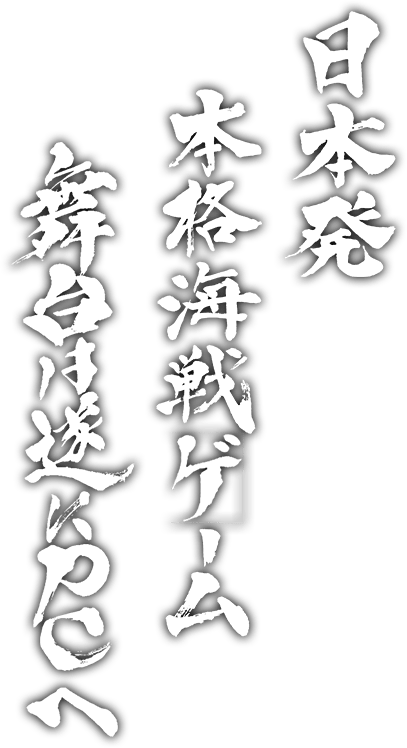 日本発
本格海戦ゲーム
舞台は遂にPCへ